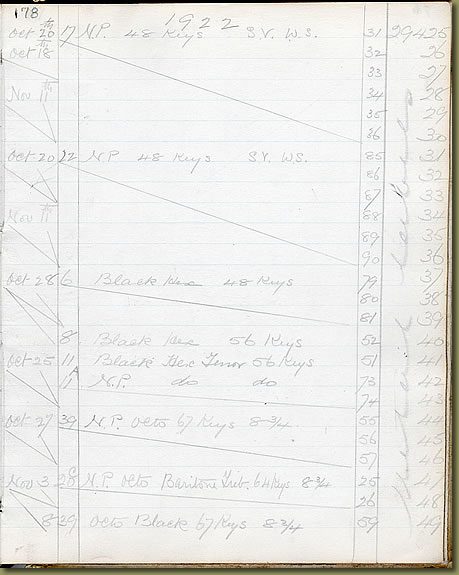 178
1922
Oct 20th 17 N.P. 48 Keys S.V. W.S. 31 29425
Oct 18 32 26
33 27
Nov 11th 34 28
35 29
36 30
Oct 20 22 N.P. 48 Keys S.V. W.S. 85 31
86 32
87 33
Nov 11th 88 34
89 35
90 36
Oct 28 6 Black Hex 48 Keys 79 37
80 38
81 39
8 Black Hex 56 Keys 52 40
Oct 25 11 Black Hex Tenor 56 Keys 51 41
11A N.P. do do 73 42
74 43
Oct 27 39 N.P. Octo 67 Keys 8 3/4 55 44
56 45
57 46
Nov 3 28 N.P. Octo Baritone Treb. 64 Keys 8 3/4 25 47
26 48
8 39 Octo Black 67 Keys 8 3/4 59 49